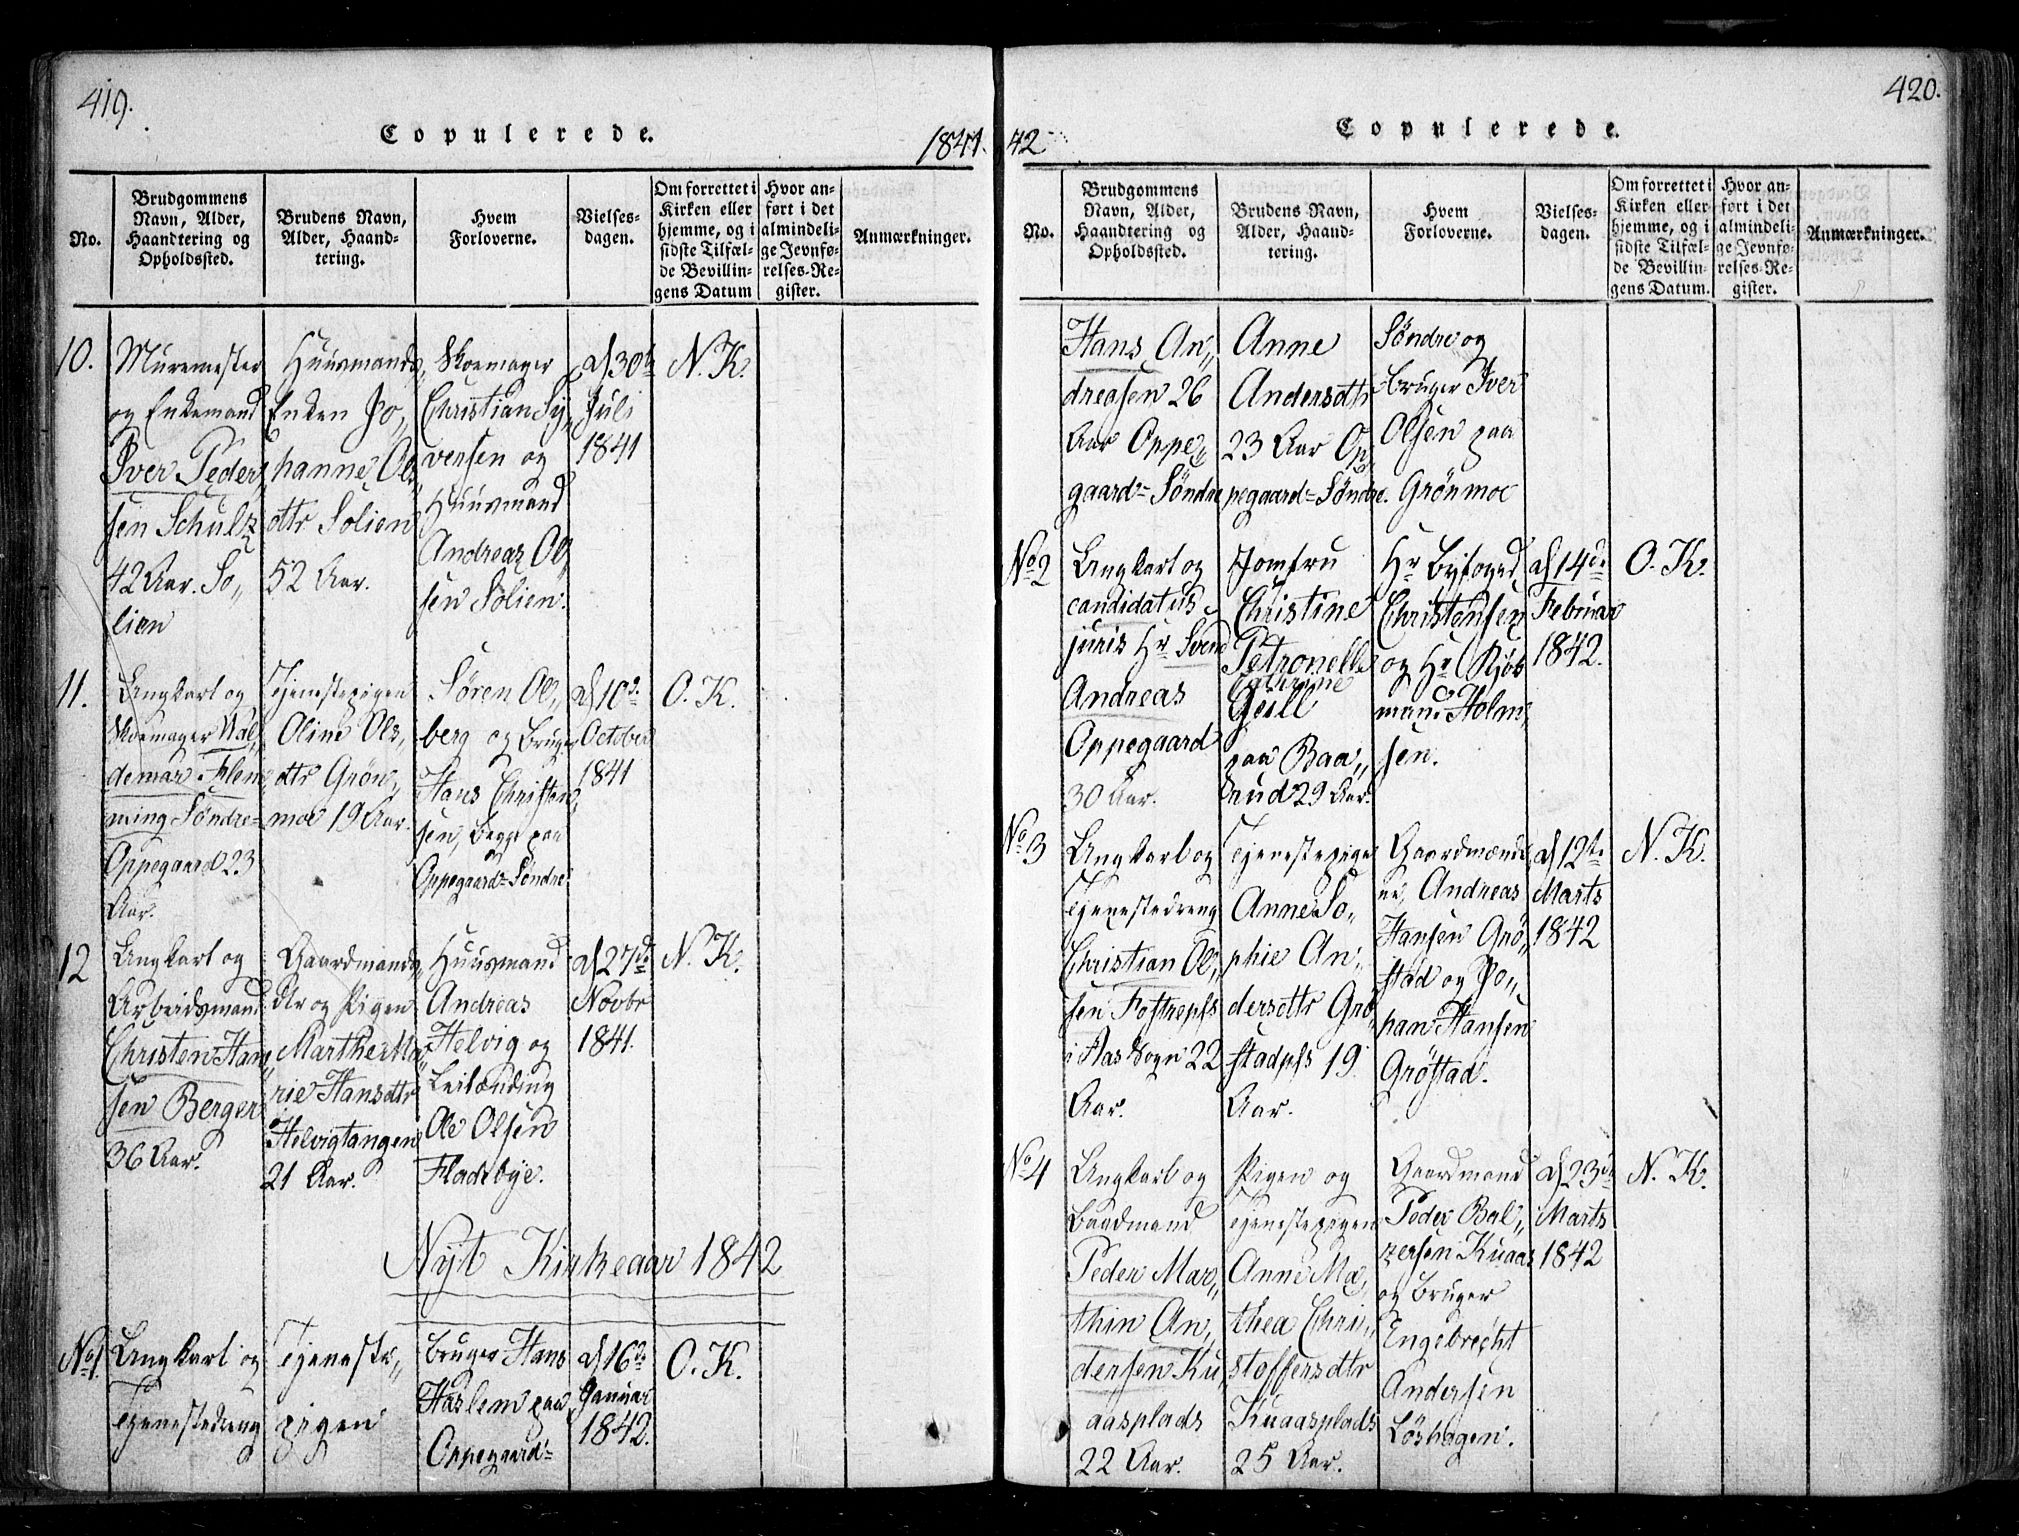 419.
Copulerede.
1841.
No.
Brudgommens Navn, Alder, Haandtering og Opholdssted.
Brudens Navn, Alder, Haandtering.
Hvem Forloverne.
Vielsesdagen.
Om forrettet i Kirken eller hjemme, og i sidste Tilfælde Bevillingens Datum
Hvor anført i det almindelige Jevnførelses-Register.
Anmærkninger.
10.
Muremester
og Enkemand
Iver Peder„
sen Schultz
42 Aar. So„
lien
Huusmands„
Enken Jo„
hanne Ols„
dtr Solien
52 Aar.
Skoemager
Christian Sy„
vensen og
Huusmand
Andreas Ol„
sen Solien.
d 30te
Juli
1841
N. K.
11.
Ungkarl og
Skoemager Wal„
demar Flem„
ming Søndre=
Oppegaard 23
Aar.
Tjenestepigen
Oline Ols„
dtr Grøn„
moe 19 Aar.
Søren Ol„
berg og Bruger
Hans Christen„
sen, begge paa
Oppegaard=Søndre.
d 10de
October
1841
O. K.
12
Ungkarl og
Arbeidsmand
Christen Han„
sen Berger
36 Aar.
Gaardmands„
dtr og Pigen
Marthe Ma„
rie Hansdtr
Helvigtangen
21 Aar.
Huusmand
Andreas
Helvig og
Leilænding
Ole Olsen
Fladebye.
d 27de
Novbr
1841.
N. K.
Nyt Kirkeaar 1842
No 1.
Ungkarl og
Tjenestedreng
Tjeneste„
pigen
Bruger Hans
Haslem paa
Oppegaard=
d 16de
Januar
1842.
O. K.
420.
Copulerede.
42
No.
Brudgommens Navn, Alder, Haandtering og Opholdssted.
Brudens Navn, Alder, Haandtering.
Hvem Forloverne.
Vielsesdagen.
Om forrettet i Kirken eller hjemme, og i sidste Tilfælde Bevillingens Datum.
Hvor anført i det almindelige Jevnførelses-Register.
Anmærkninger.
Hans An„
dreasen 26
Aar Oppe„
gaard=Søndre
Anne
Andersdtr
23 Aar Op„
pegaard=Søndre.
Søndre og
Bruger Iver
Olsen paa
Grønmoe
No 2
Ungkarl og
candidatus
juris Hr Svend
Andreas
Oppegaard
30 Aar.
Jomfru
Christine
Petronelle
Catrine
Geill
paa Baa„
rud 29 Aar.
Hr Byfoged
Christensen
og Hr Kjøb
mand Holm„
sen.
d 14de
Februar
1842.
O. K.
No 3
Ungkarl og
Tjenestedreng
Christian Ol„
sen
i Aas Sogn 22
Aar.
Tjenestepige
Anne So„
phie An„
dersdtr Grø„
stadpls 19
Aar.
Gaardmænde
ne, Andreas
Hansen Grø„
stad og Jo„
han Hansen
Grøstad.
d 12te
Marts
1842
N. K.
No 4
Ungkarl og
Baadmand
Peder Mar„
thin An„
dersen Ku„
aasplads
22 Aar.
Pigen og
Tjenestepigen
Anne Ma„
thea Chri„
stoffersdtr
Kuaasplads
25 Aar.
Gaardmand
Peder Bal„
zersen Kuaas
og Bruger
Engebrecht
Andersen
Løshagen.
d 23de
Marts
1842
N. K.